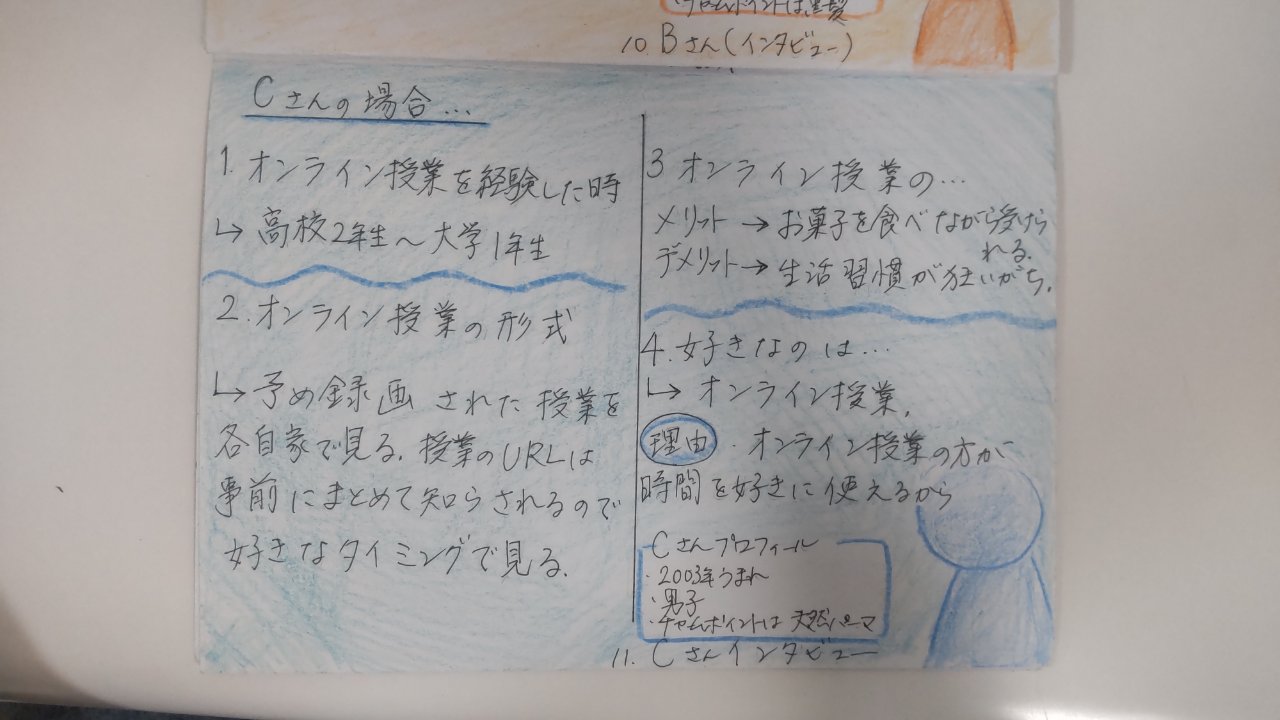 ・チャームポイントは黒髪
10. Bさん(インタビュー)
Cさんの場合…
1. オンライン授業を経験した時
↳ 高校2年生〜大学1年生
2. オンライン授業の形式
↳ 予め録画された授業を
各自家で見る. 授業のURLは
事前にまとめて知らされるので
好きなタイミングで見る.
3 オンライン授業の…
メリット → お菓子を食べながら受けら
れる.
デメリット → 生活習慣が狂いがち.
4. 好きなのは…
↳ オンライン授業.
理由 . オンライン授業の方が
時間を好きに使えるから
Cさんプロフィール
・2003年うまれ
・男子
・チャムポイントは天然パーマ
11. Cさんインタビュー